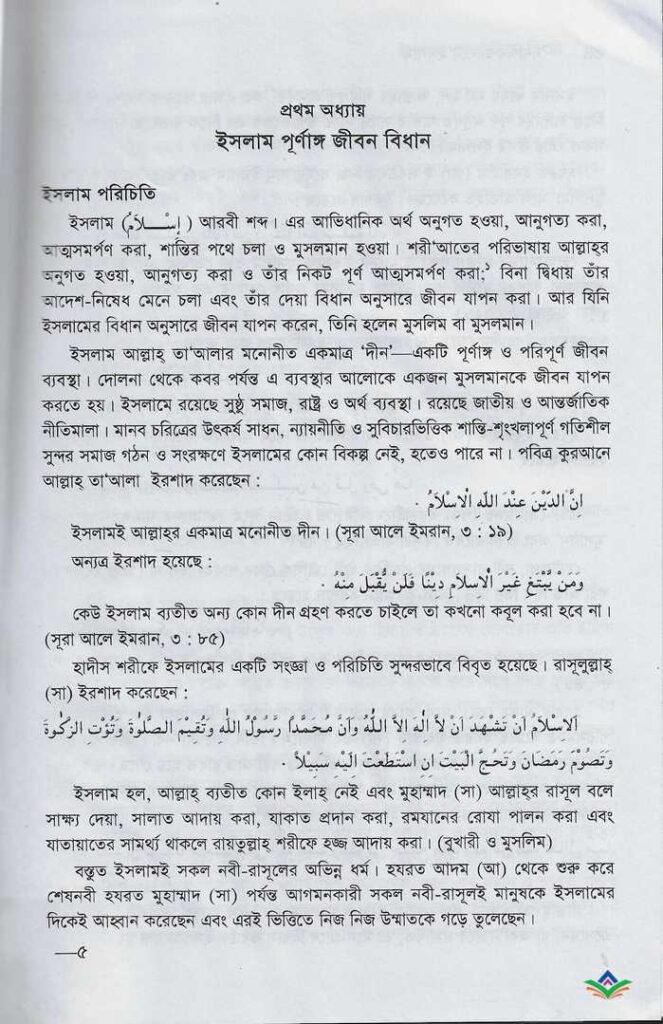 প্রথম অধ্যায়
ইসলাম পূর্ণাঙ্গ জীবন বিধান
ইসলাম পরিচিতি
ইসলাম (إِسْـــلاَمُ) আরবী শব্দ। এর আভিধানিক অর্থ অনুগত হওয়া, আনুগত্য করা,
আত্মসমর্পণ করা, শান্তির পথে চলা ও মুসলমান হওয়া। শরী‘আতের পরিভাষায় আল্লাহ্‌র
অনুগত হওয়া, আনুগত্য করা ও তাঁর নিকট পূর্ণ আত্মসমর্পণ করা;১ বিনা দ্বিধায় তাঁর
আদেশ-নিষেধ মেনে চলা এবং তাঁর দেয়া বিধান অনুসারে জীবন যাপন করা। আর যিনি
ইসলামের বিধান অনুসারে জীবন যাপন করেন, তিনি হলেন মুসলিম বা মুসলমান।
ইসলাম আল্লাহ্ তা‘আলার মনোনীত একমাত্র ‘দীন’—একটি পূর্ণাঙ্গ ও পরিপূর্ণ জীবন
ব্যবস্থা। দোলনা থেকে কবর পর্যন্ত এ ব্যবস্থার আলোকে একজন মুসলমানকে জীবন যাপন
করতে হয়। ইসলামে রয়েছে সুষ্ঠু সমাজ, রাষ্ট্র ও অর্থ ব্যবস্থা। রয়েছে জাতীয় ও আন্তর্জাতিক
নীতিমালা। মানব চরিত্রের উৎকর্ষ সাধন, ন্যায়নীতি ও সুবিচারভিত্তিক শান্তি-শৃংখলাপূর্ণ গতিশীল
সুন্দর সমাজ গঠন ও সংরক্ষণে ইসলামের কোন বিকল্প নেই, হতেও পারে না। পবিত্র কুরআনে
আল্লাহ্ তা‘আলা ইরশাদ করেছেন :
اِنَّ الدِّيْنَ عِنْدَ اللّٰهِ الْاِسْلاَمُ ·
ইসলামই আল্লাহ্‌র একমাত্র মনোনীত দীন। (সূরা আলে ইমরান, ৩ : ১৯)
অন্যত্র ইরশাদ হয়েছে :
وَمَنْ يَّبْتَغِ غَيْرَ الْاِسْلاَمِ دِيْنًا فَلَنْ يُّقْبَلَ مِنْهُ ·
কেউ ইসলাম ব্যতীত অন্য কোন দীন গ্রহণ করতে চাইলে তা কখনো কবূল করা হবে না।
(সূরা আলে ইমরান, ৩ : ৮৫)
হাদীস শরীফে ইসলামের একটি সংজ্ঞা ও পরিচিতি সুন্দরভাবে বিবৃত হয়েছে। রাসূলুল্লাহ্
(সা) ইরশাদ করেছেন :
اَلْاِسْلاَمُ اَنْ تَشْهَدَ اَنْ لاَّ اِلٰهَ اِلاَّ اللّٰهُ وَاَنَّ مُحَمَّدًا رَّسُوْلُ اللّٰهِ وَتُقِيْمَ الصَّلٰوةَ وَتُؤْتِ الزَّكٰوةَ
وَتَصُوْمَ رَمَضَانَ وَتَحُجَّ الْبَيْتَ اِنِ اسْتَطَعْتَ اِلَيْهِ سَبِيْلاً ·
ইসলাম হল, আল্লাহ্ ব্যতীত কোন ইলাহ্ নেই এবং মুহাম্মাদ (সা) আল্লাহ্‌র রাসূল বলে
সাক্ষ্য দেয়া, সালাত আদায় করা, যাকাত প্রদান করা, রমযানের রোযা পালন করা এবং
যাতায়াতের সামর্থ্য থাকলে রায়তুল্লাহ্ শরীফে হজ্জ আদায় করা। (বুখারী ও মুসলিম)
বস্তুত ইসলামই সকল নবী-রাসূলের অভিন্ন ধর্ম। হযরত আদম (আ) থেকে শুরু করে
শেষনবী হযরত মুহাম্মাদ (সা) পর্যন্ত আগমনকারী সকল নবী-রাসূলই মানুষকে ইসলামের
দিকেই আহবান করেছেন এবং এরই ভিত্তিতে নিজ নিজ উম্মাতকে গড়ে তুলেছেন।
—৫